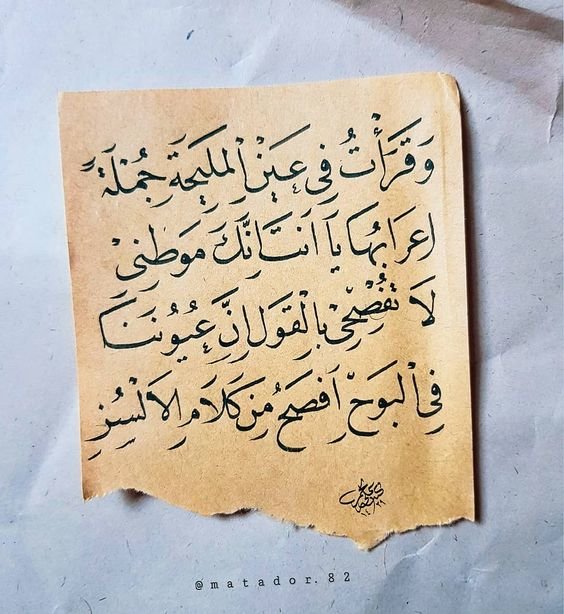 وَقَرَأْتُ فِي عَيْنِ الْمَلِيْحَةِ جُمْلَةً
اعرَابُهَا يَا اَنتَ اِنَّكَ مَوَطِنِيْ
لَا تُفْصِحِيْ بِالْقَولِ اِنَّ عُيُونَنَا
فِي الْبَوحْ اَفصَحُ مِن كَلَامِ الاَلْسُنِ
@matador.82